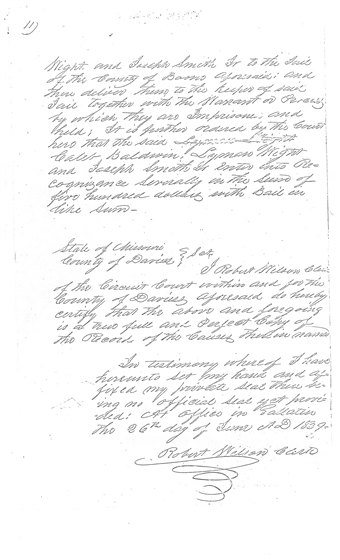 11)
Wight and Joseph Smith Jr to the Jail
of the County of Boone aforesaid; and
there deliver them to the keeper of said
Jail together with the Warrant or Process
by which they are Imprisoned and
held; It is further ordered by the Court
here that the said Lyman Wight
Caleb Baldwin, Lyman Wight
and Joseph Smith Jr enter into Re-
cognizance severally in the sum of
five hundred dollars with Bail in
like sum—
State of Missouri
County of Daviess } Sct
I Robert Wilson Clerk
of the Circuit Court within and for the
County of Daviess aforesaid do hereby
certify that the above and foregoing
is a true full and Perfect Copy of
the Record of the Causes therein named
In testimony whereof I have
hereunto set my hand and af-
fixed my private seal there be-
ing no official seal yet provi-
ded: At office in Gallatin
this 26th day of June A D 1839.
Robert Wilson Clerk